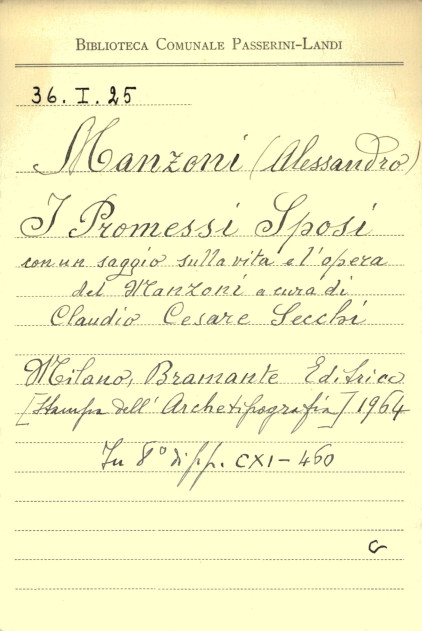 BIBLIOTECA COMUNALE PASSERINI-LANDI
36. I. 25
Manzoni (Alessandro)
I Promessi Sposi
con un saggio sulla vita e l'opera
del Manzoni a cura di
Claudio Cesare Secchi
Milano, Bramante Editrice
[Stampa dell' Archetipografia] 1964
In 8° di pp. CXI-460